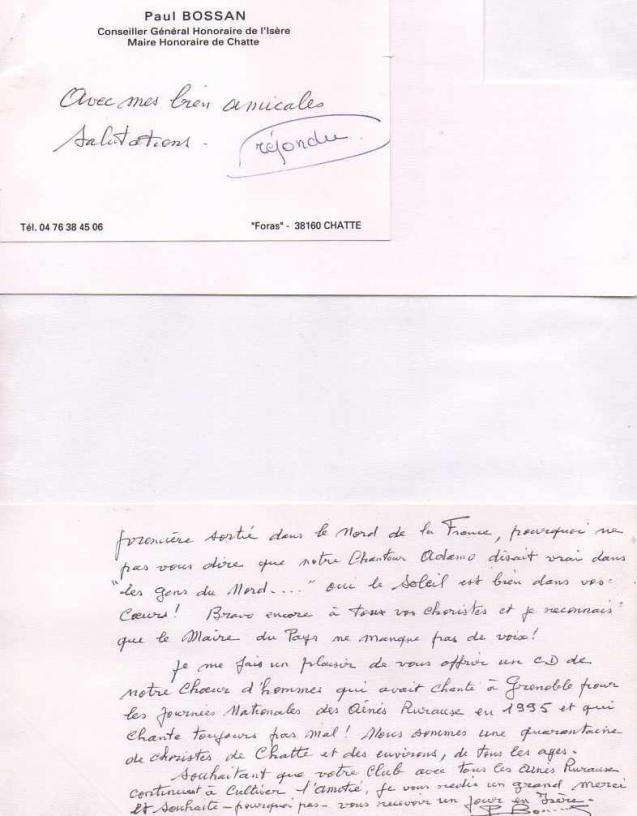 Paul BOSSAN
Conseiller Général Honoraire de l'Isère
Maire Honoraire de Chatte
Avec mes bien amicales
salutations.
répondu
Tél. 04 76 38 45 06
"Foras" - 38160 CHATTE
première sortie dans le Nord de la France, pourquoi ne
pas vous dire que notre Chanteur Adamo disait vrai dans
"les gens du Nord...." oui le Soleil est bien dans vos
Coeurs! Bravo encore à tous vos choristes et je reconnais
que le Maire du Pays ne manque pas de voix!
Je me fais un plaisir de vous offrir un CD de
notre Choeur d'hommes qui avait chanté à Grenoble pour
les Journées Nationales des Ainés Ruraux en 1995 et qui
Chante toujours pas mal! Nous sommes une quarantaine
de choristes de Chatte et des environs, de tous les ages.
Souhaitant que votre Club avec tous les Ainés Ruraux
continuent à Cultiver l'amitié, je vous redis un grand merci
et souhaite - pourquoi pas - vous recevoir un jour en Isère.
P Bossan